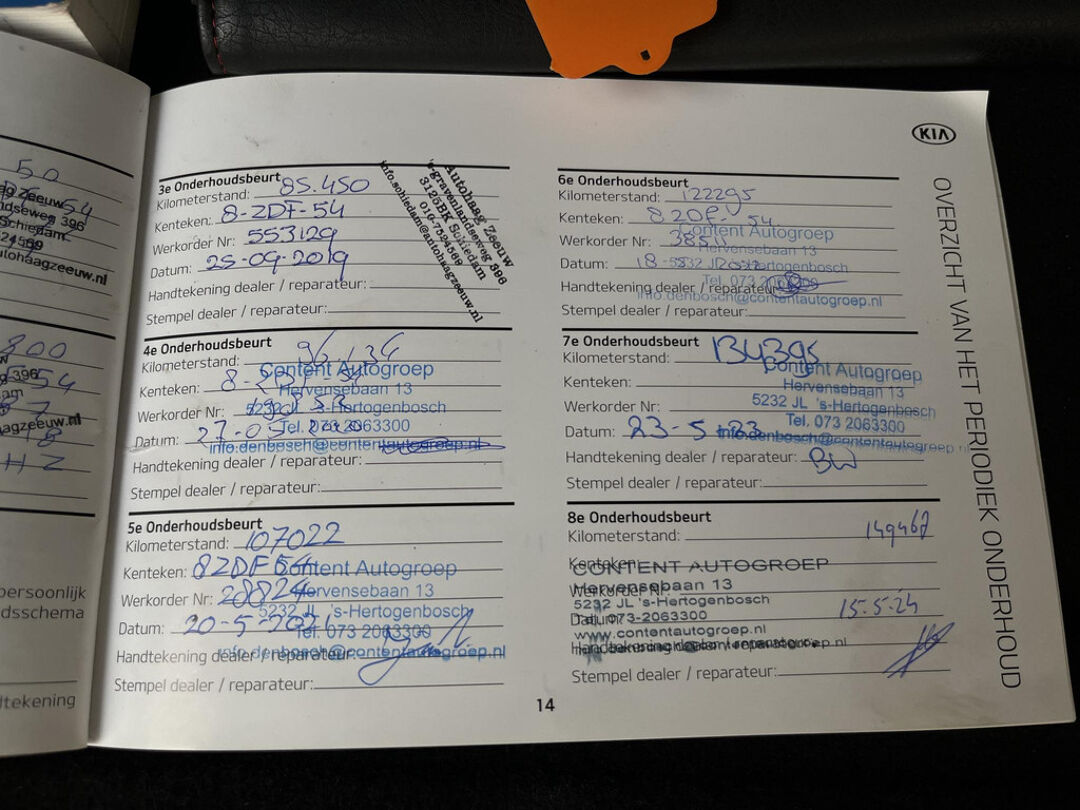 50
396
Schiedam
autohaagzeeuw.nl
800
396
54
persoonlijk
dsschema
KIA
OVERZICHT VAN HET PERIODIEK ONDERHOUD
3e Onderhoudsbeurt
Kilometerstand: 85.450
Kenteken: 8-ZDF-54
Werkorder Nr: 553129
Datum: 25-09-2019
Handtekening dealer / reparateur:
Stempel dealer / reparateur:
Autohaag Zeeuw
's-gravenlandseweg 396
3125BK Schiedam
010-7524569
info.schiedam@autohaagzeeuw.nl
4e Onderhoudsbeurt
Kilometerstand: 96134
Kenteken: 8-ZDF-54
Werkorder Nr:
Datum: 27-05-2020
Handtekening dealer / reparateur:
Stempel dealer / reparateur:
Content Autogroep
Hervensebaan 13
5232 JL 's-Hertogenbosch
Tel. 073 2063300
info.denbosch@contentautogroep.nl
5e Onderhoudsbeurt
Kilometerstand: 107022
Kenteken: 8ZDF54
Werkorder Nr: 28824
Datum: 20-5-2021
Handtekening dealer / reparateur:
Stempel dealer / reparateur:
Content Autogroep
Hervensebaan 13
5232 JL 's-Hertogenbosch
Tel. 073 2063300
info.denbosch@contentautogroep.nl
6e Onderhoudsbeurt
Kilometerstand: 122295
Kenteken: 8ZDF-54
Werkorder Nr: 38511
Datum: 18-5-2022
Handtekening dealer / reparateur:
Stempel dealer / reparateur:
Content Autogroep
Hervensebaan 13
5232 JL 's-Hertogenbosch
Tel. 073 2063300
info.denbosch@contentautogroep.nl
7e Onderhoudsbeurt
Kilometerstand: 134395
Kenteken:
Werkorder Nr:
Datum: 23-5-23
Handtekening dealer / reparateur: BW
Stempel dealer / reparateur:
Content Autogroep
Hervensebaan 13
5232 JL 's-Hertogenbosch
Tel. 073 2063300
info.denbosch@contentautogroep.nl
8e Onderhoudsbeurt
Kilometerstand: 149467
Kenteken:
Werkorder Nr:
Datum: 15.5.24
Handtekening dealer / reparateur:
Stempel dealer / reparateur:
CONTENT AUTOGROEP
Hervensebaan 13
5232 JL 's-Hertogenbosch
Tel. 073-2063300
www.contentautogroep.nl
14